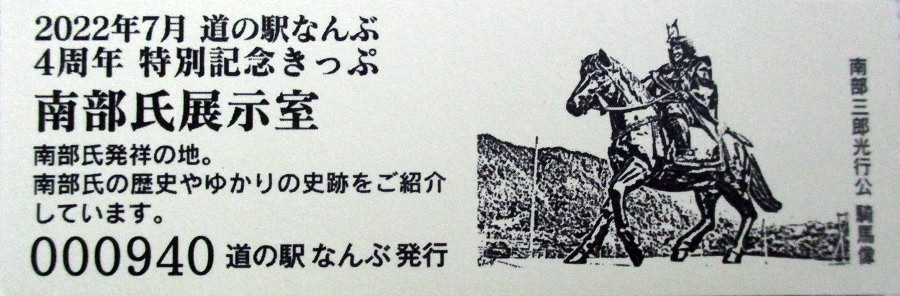 2022年7月 道の駅なんぶ
4周年 特別記念きっぷ
南部氏展示室
南部氏発祥の地。
南部氏の歴史やゆかりの史跡をご紹介
しています。
000940 道の駅 なんぶ 発行
南部三郎光行公 騎馬像